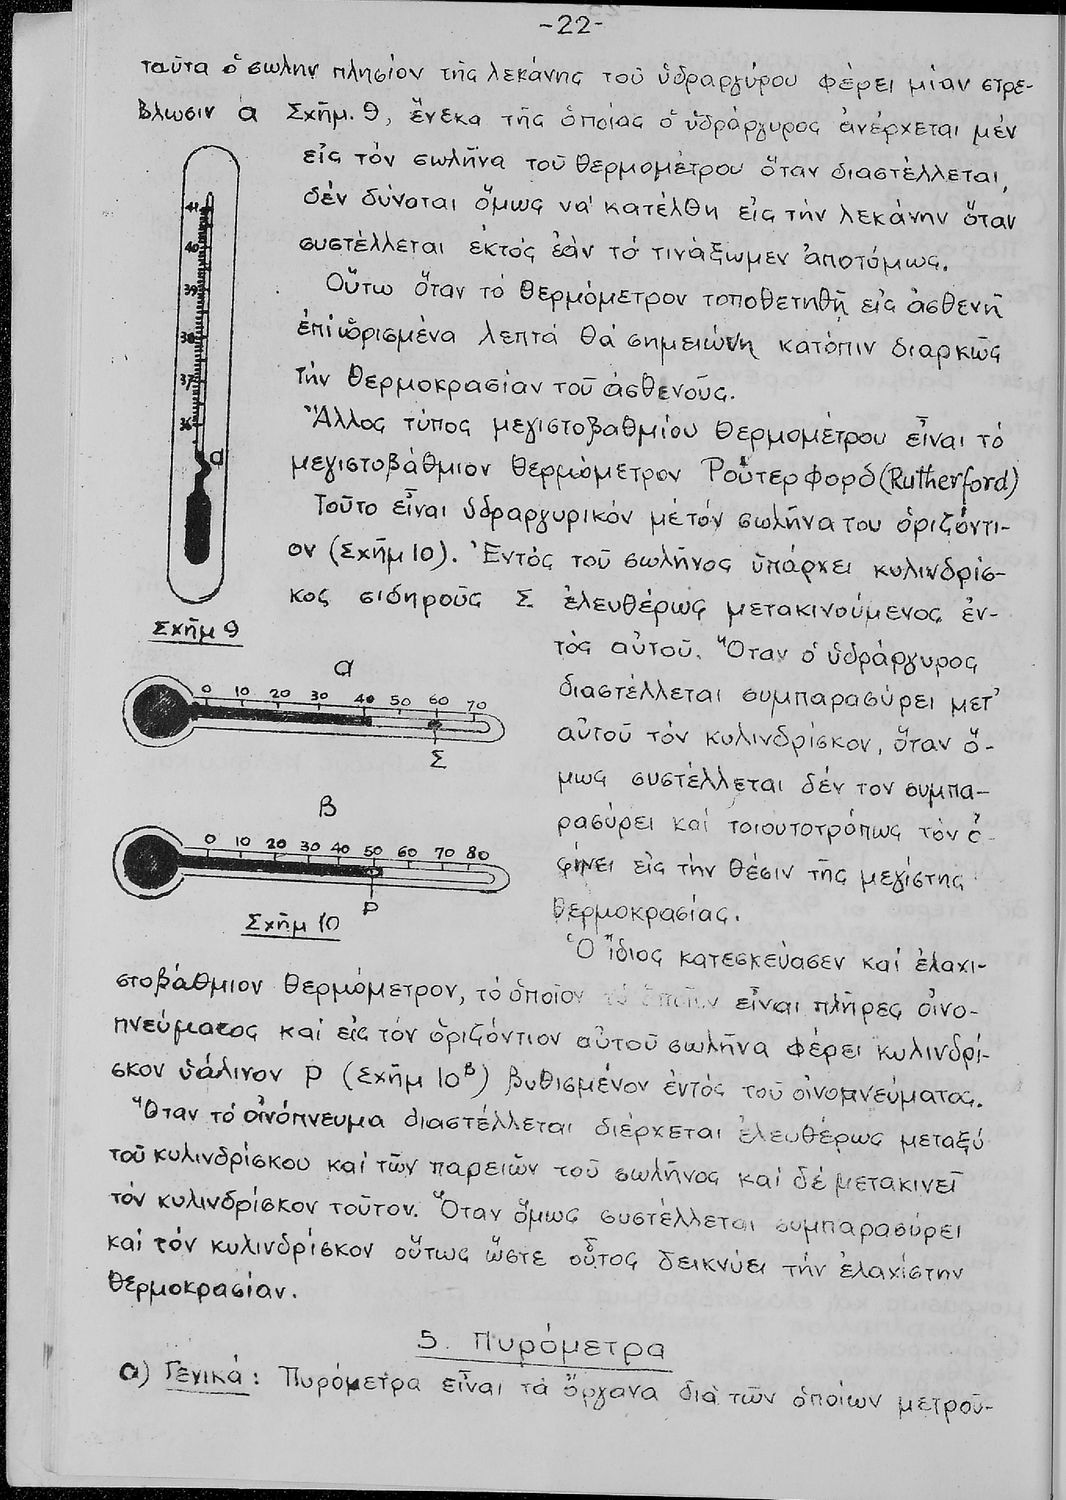 -22-
ταῦτα ὁ σωλην πλησίον τῆς λεκάνης τοῦ ὑδραργύρου φέρει μίαν στρε-
βλωσιν α Σχῆμ. 9, ἕνεκα τῆς ὁποίας ὁ ὑδράργυρος ἀνέρχεται μέν
εἰς τόν σωλῆνα τοῦ θερμομέτρου ὅταν διαστέλλεται,
δέν δύναται ὅμως νά κατέλθη εἰς τήν λεκάνην ὅταν
συστέλλεται ἐκτός ἐάν τό τινάξωμεν ἀποτόμως.
Οὕτω ὅταν τό θερμόμετρον τοποθετηθῆ εἰς ἀσθενῆ
ἐπί ὡρισμένα λεπτά θά σημειώνη κατόπιν διαρκῶς
τήν θερμοκρασίαν τοῦ ἀσθενοῦς.
Ἄλλος τύπος μεγιστοβαθμίου θερμομέτρου εἶναι τό
μεγιστοβάθμιον θερμόμετρον Ροῦτερφορδ (Rutherford)
Τοῦτο εἶναι ὑδραργυρικόν μέ τόν σωλῆνα του ὁριζόντι-
ον (Σχῆμ 10). Ἐντός τοῦ σωλῆνος ὑπάρχει κυλινδρίσ-
κος σιδηροῦς Σ ἐλευθέρως μετακινούμενος ἐν-
τός αὐτοῦ. Ὅταν ὁ ὑδράργυρος
διαστέλλεται συμπαρασύρει μετ'
αὐτοῦ τόν κυλινδρίσκον, ὅταν ὅ-
μως συστέλλεται δέν τον συμπα-
ρασύρει καί τοιουτοτρόπως τόν ἀ-
φίνει εἰς τήν θέσιν τῆς μεγίστης
θερμοκρασίας.
41
40
39
38
37
36
α
Σχῆμ 9
α
0 10 20 30 40 50 60 70
Σ
β
0 10 20 30 40 50 60 70 80
Ρ
Σχῆμ 10
Ὁ ἴδιος κατεσκεύασεν καί ἐλαχι-
στοβάθμιον θερμόμετρον, τό ὁποῖον τό ὁποῖον εἶναι πλῆρες οἰνο-
πνεύματος καί εἰς τόν ὁριζόντιον αὐτοῦ σωλῆνα φέρει κυλινδρί-
σκον ὑάλινον Ρ (Σχῆμ 10β) βυθισμένον ἐντός τοῦ οἰνοπνεύματος.
Ὅταν τό οἰνόπνευμα διαστέλλεται διέρχεται ἐλευθέρως μεταξύ
τοῦ κυλινδρίσκου καί τῶν παρειῶν τοῦ σωλῆνος καί δέ μετακινεῖ
τόν κυλινδρίσκον τοῦτον. Ὅταν ὅμως συστέλλεται συμπαρασύρει
καί τόν κυλινδρίσκον οὕτως ὥστε οὗτος δεικνύει τήν ἐλαχίστην
θερμοκρασίαν.
5. Πυρόμετρα
α) Γενικά: Πυρόμετρα εἶναι τά ὄργανα διά τῶν ὁποίων μετροῦ-